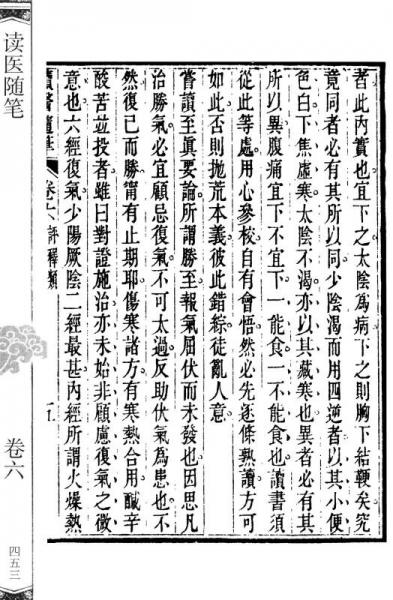 者此內實也宜下之太陰為病下之則胸下結鞕矣究
竟同者必有其所以同少陰渴而用四逆者以其小便
色白下焦虛寒太陰不渴亦以其藏寒也異者必有其
所以異腹痛宜下不宜下一能食一不能食也讀書須
從此等處用心參校自有會悟然必先逐條熟讀方可
如此否則拋荒本義彼此錯綜徒亂人意
嘗讀至眞要論所謂勝至報氣屈伏而未發也因思凡
治勝氣必宜顧忌復氣不可太過反助伏氣為患也不
然復已而勝甯有止期耶傷寒諸方有寒熱合用鹹辛
酸苦並投者雖曰對證施治亦未始非顧慮復氣之微
意也六經復氣少陽厥陰二經最甚內經所謂火燥熱
讀醫隨筆 卷六 評釋類 五
读医随笔
卷六
四五三